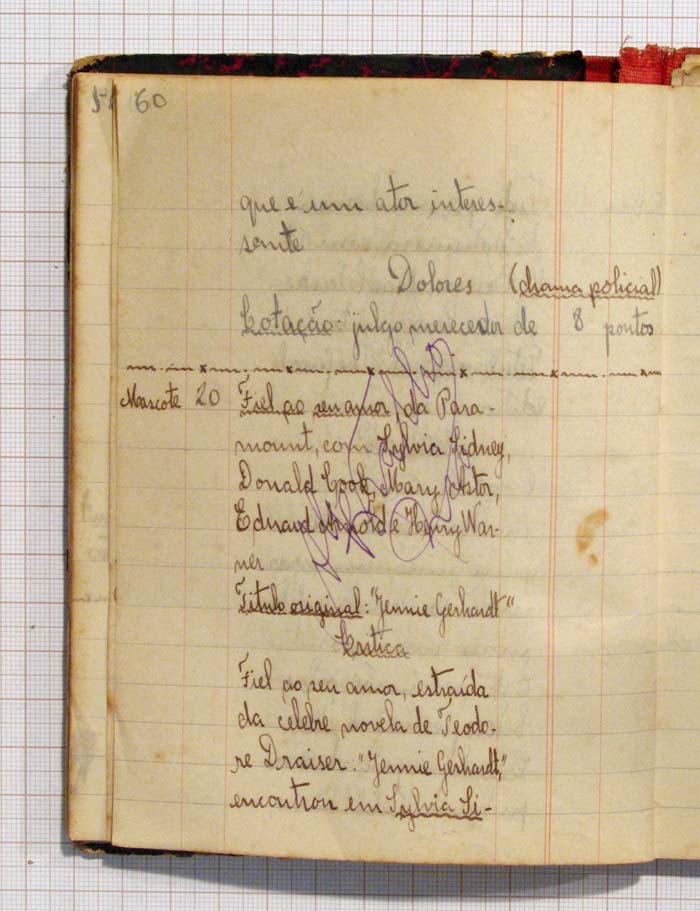 60
que é um ator interes-
sante
Dolores (drama policial)
Cotação: julgo merecedor de 8 pontos
Mascote 20 Fiel ao seu amor, da Para-
mount, com Sylvia Sidney,
Donald Cook, Mary Astor,
Eduard Arnold e Henry War-
ner
Titulo original: "Jennie Gerhardt"
Critica
Fiel ao seu amor, estraída
da celebre novela de Teodo-
re Draiser: "Jennie Gerhardt",
encontrou em Sylvia Si-